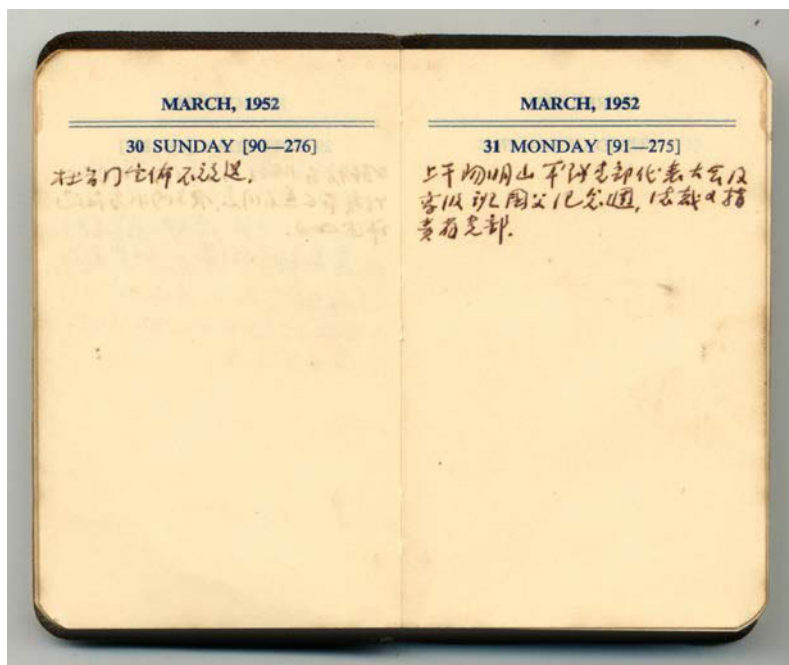 MARCH, 1952
30 SUNDAY [90—276]
杜鲁门宣佈不競選.
MARCH, 1952
31 MONDAY [91—275]
上午陽明山 黨部代表大会及
国父纪念週, 总裁又指
責省党部.